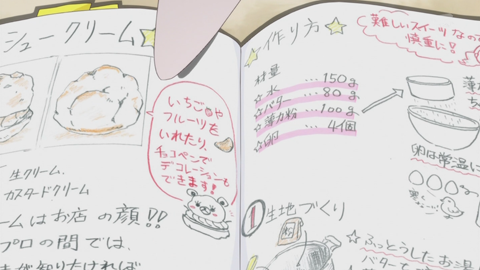 シュークリーム
いちごや
フルーツを
いれたり、
チョコペンで
デコレーションも
できます!
生クリーム、
カスタードクリーム
ームはお店の顔!!
プロの間では、
作り方
難しいスイーツなの
慎重に!
材量
☆水 … 150g
☆バター … 80g
☆薄力粉 … 100g
☆卵 … 4個
卵は常温に
1 生地づくり
☆ふっとうしたお湯
バターを